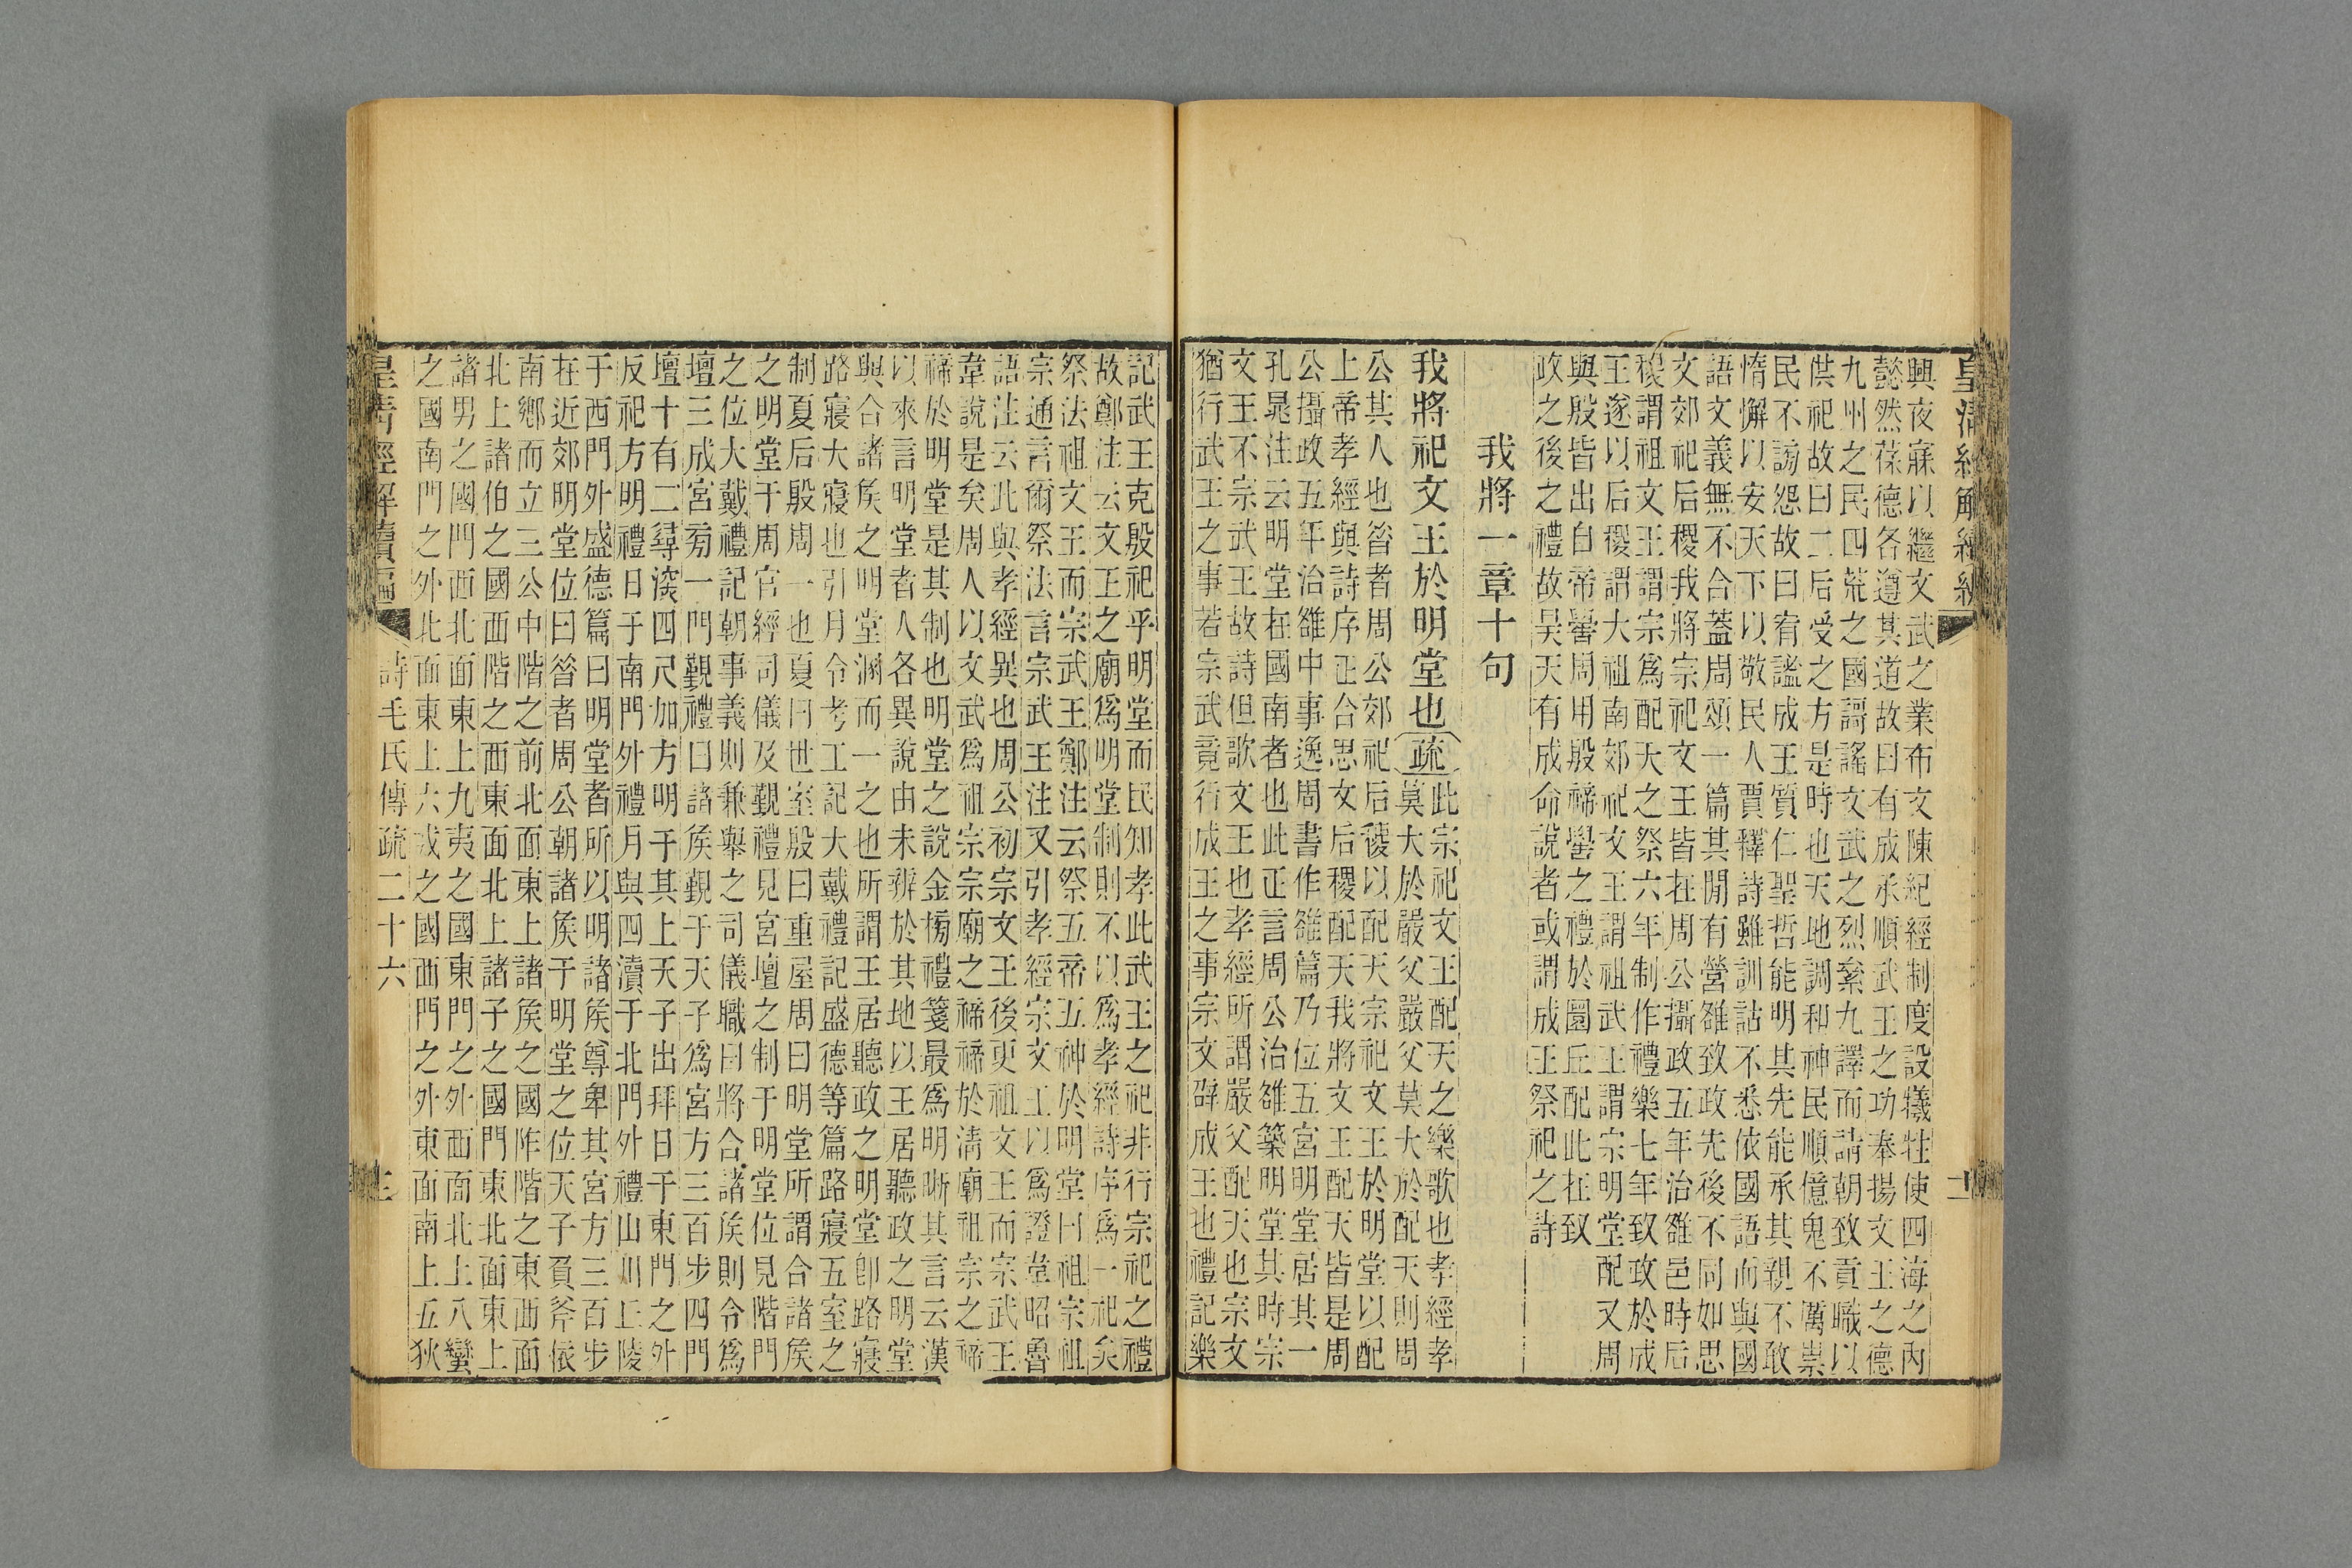 皇清經解續編
二
興夜寐以繼文武之業布文陳紀經制度設犧牲使四海之內
懿然葆德各遵其道故曰有成承順武王之功奉揚文王之德
九州之民四荒之國謌謠文武之烈絫九譯而請朝致貢職以
供祀故曰二后受之方是時也天地調和神民順億鬼不厲祟
民不謗怨故曰宥謐成王質仁聖哲能明其先能承其親不敢
惰懈以安天下以敬民人賈釋詩雖訓詁不悉依國語而與國
語文義無不合蓋周頌一篇其閒有營雒致政先後不同如思
文郊祀后稷我將宗祀文王皆在周公攝政五年治雒邑時后
稷謂祖文王謂宗爲配天之祭六年制作禮樂七年致政於成
王遂以后稷謂大祖南郊祀文王謂祖武王謂宗明堂配又周
與殷皆出自帝嚳周用殷禘嚳之禮於圜丘配此在致
政之後之禮故昊天有成命說者或謂成王祭祀之詩
我將一章十句
我將祀文王於明堂也疏此宗祀文王配天之樂歌也孝經孝
莫大於嚴父嚴父莫大於配天則周
公其人也昝者周公郊祀后稷以配天宗祀文王於明堂以配
上帝孝經與詩序正合思文后稷配天我將文王配天皆是周
公攝政五年治雒中事逸周書作雒篇乃位五宮明堂居其一
孔晁注云明堂在國南者也此正言周公治雒築明堂其時宗
文王不宗武王故詩但歌文王也孝經所謂嚴父配天也宗文
猶行武王之事若宗武竟行成王之事宗文嗣成王也禮記樂
記武王克殷祀乎明堂而民知孝此武王之祀非行宗祀之禮
故鄭注云文王之廟爲明堂制則不以爲孝經詩序爲一祀矣
祭法祖文王而宗武王鄭注云祭五帝五神於明堂曰祖宗祖
宗通言爾祭法言宗武王注又引孝經宗文王以爲證韋昭魯
語注云此與孝經異也周公初宗文王後更祖文王而宗武王
韋說是矣周人以文武爲祖宗宗廟之禘禘於清廟祖宗之禘
禘於明堂是其制也明堂之說金榜禮箋最爲明晰其言云漢
以來言明堂者人各異說由未辨於其地以王居聽政之明堂
與合諸矦之明堂溷而一之也所謂王居聽政之明堂卽路寢
路寢大寢也引月令考工記大戴禮記盛德等篇路寢五室之
制夏后殷周一也夏曰世室殷曰重屋周曰明堂所謂合諸矦
之明堂于周官經司儀及覲禮見宮壇之制于明堂位見階門
之位大戴禮記朝事義則兼舉之司儀職曰將合諸矦則令爲
壇三成宮旁一門覲禮曰諸矦覲于天子爲宮方三百步四門
壇十有二尋深四尺加方明于其上天子出拜日于東門之外
反祀方明禮日于南門外禮月與四瀆于北門外禮山川丘陵
于西門外盛德篇曰明堂者所以明諸矦尊卑其宮方三百步
在近郊明堂位曰昝者周公朝諸矦于明堂之位天子負斧依
南鄉而立三公中階之前北面東上諸矦之國阼階之東西面
北上諸伯之國西階之西東面北上諸子之國門東北面東上
諸男之國門西北面東上九夷之國東門之外西面北上八蠻
之國南門之外北面東上六戎之國西門之外東面南上五狄
皇清經解續編
詩毛氏傳疏二十六
三